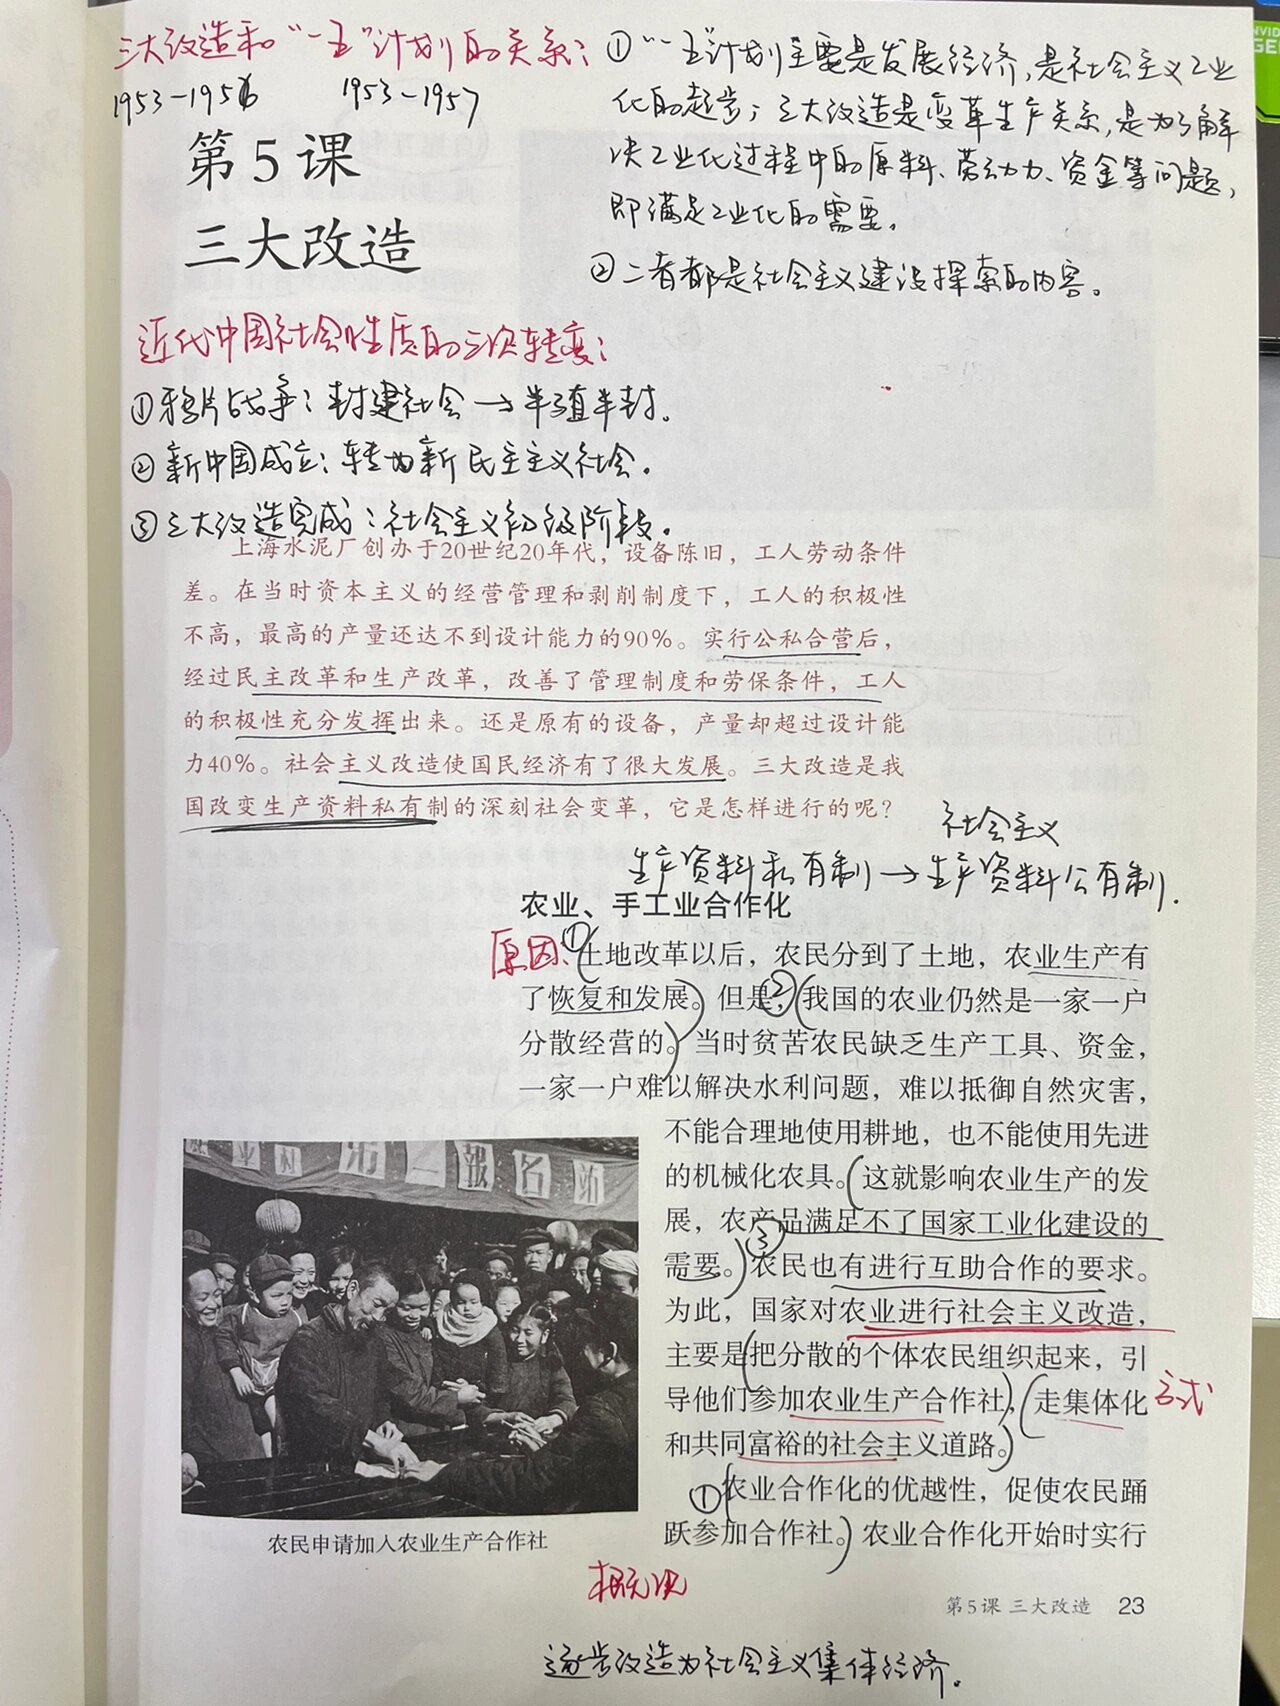 三大改造和“一五”计划的关系：
1953-1956 1953-1957
①“一五”计划主要是发展经济，是社会主义工业
化的起步；三大改造是变革生产关系，是为了解
决工业化过程中的原料、劳动力、资金等问题，
即满足工业化的需要。
②二者都是社会主义建设探索的内容。
第5课
三大改造
近代中国社会性质的三次转变：
①鸦片战争：封建社会→半殖半封。
②新中国成立：转为新民主主义社会。
③三大改造完成：社会主义初级阶段。
上海水泥厂创办于20世纪20年代，设备陈旧，工人劳动条件
差。在当时资本主义的经营管理和剥削制度下，工人的积极性
不高，最高的产量还达不到设计能力的90%。实行公私合营后，
经过民主改革和生产改革，改善了管理制度和劳保条件，工人
的积极性充分发挥出来。还是原有的设备，产量却超过设计能
力40%。社会主义改造使国民经济有了很大发展。三大改造是我
国改变生产资料私有制的深刻社会变革，它是怎样进行的呢？
社会主义
生产资料私有制→生产资料公有制.
农业、手工业合作化
原因：①土地改革以后，农民分到了土地，农业生产有
了恢复和发展。但是，②我国的农业仍然是一家一户
分散经营的。当时贫苦农民缺乏生产工具、资金，
一家一户难以解决水利问题，难以抵御自然灾害，
不能合理地使用耕地，也不能使用先进
的机械化农具。这就影响农业生产的发
展，农产品满足不了国家工业化建设的
需要。③农民也有进行互助合作的要求。
为此，国家对农业进行社会主义改造，
主要是把分散的个体农民组织起来，引
导他们参加农业生产合作社，走集体化 方式
和共同富裕的社会主义道路。
①农业合作化的优越性，促使农民踊
跃参加合作社。农业合作化开始时实行
第一報名站
农民申请加入农业生产合作社
概况
第5课 三大改造 23
逐步改造为社会主义集体经济.